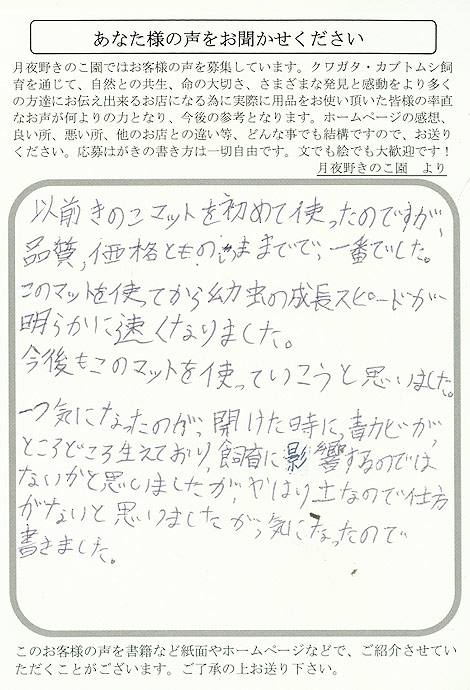 あなた様の声をお聞かせください
月夜野きのこ園ではお客様の声を募集しています。クワガタ・カブトムシ飼
育を通じて、自然との共生、命の大切さ、さまざまな発見と感動をより多く
の方達にお伝え出来るお店になる為に実際に用品をお使い頂いた皆様の率直
なお声が何よりの力となり、今後の参考となります。ホームページの感想、
良い所、悪い所、他のお店との違い等、どんな事でも結構ですので、お送り
ください。応募はがきの書き方は一切自由です。文でも絵でも大歓迎です！
月夜野きのこ園　より
以前きのこマットを初めて使ったのですが、
品質、価格とも今までで、一番でした。
このマットを使ってから幼虫の成長スピードが
明らかに速くなりました。
今後もこのマットを使っていこうと思いました。
一つ気になったのが、開けた時に、青カビが、
ところどころ生えており、飼育に影響するのでは
ないかと思いましたが、やはり土なので仕方
がないと思いましたが、気になったので
書きました。
このお客様の声を書籍など紙面やホームページなどで、ご紹介させてい
ただくことがございます。ご了承の上お送り下さい。